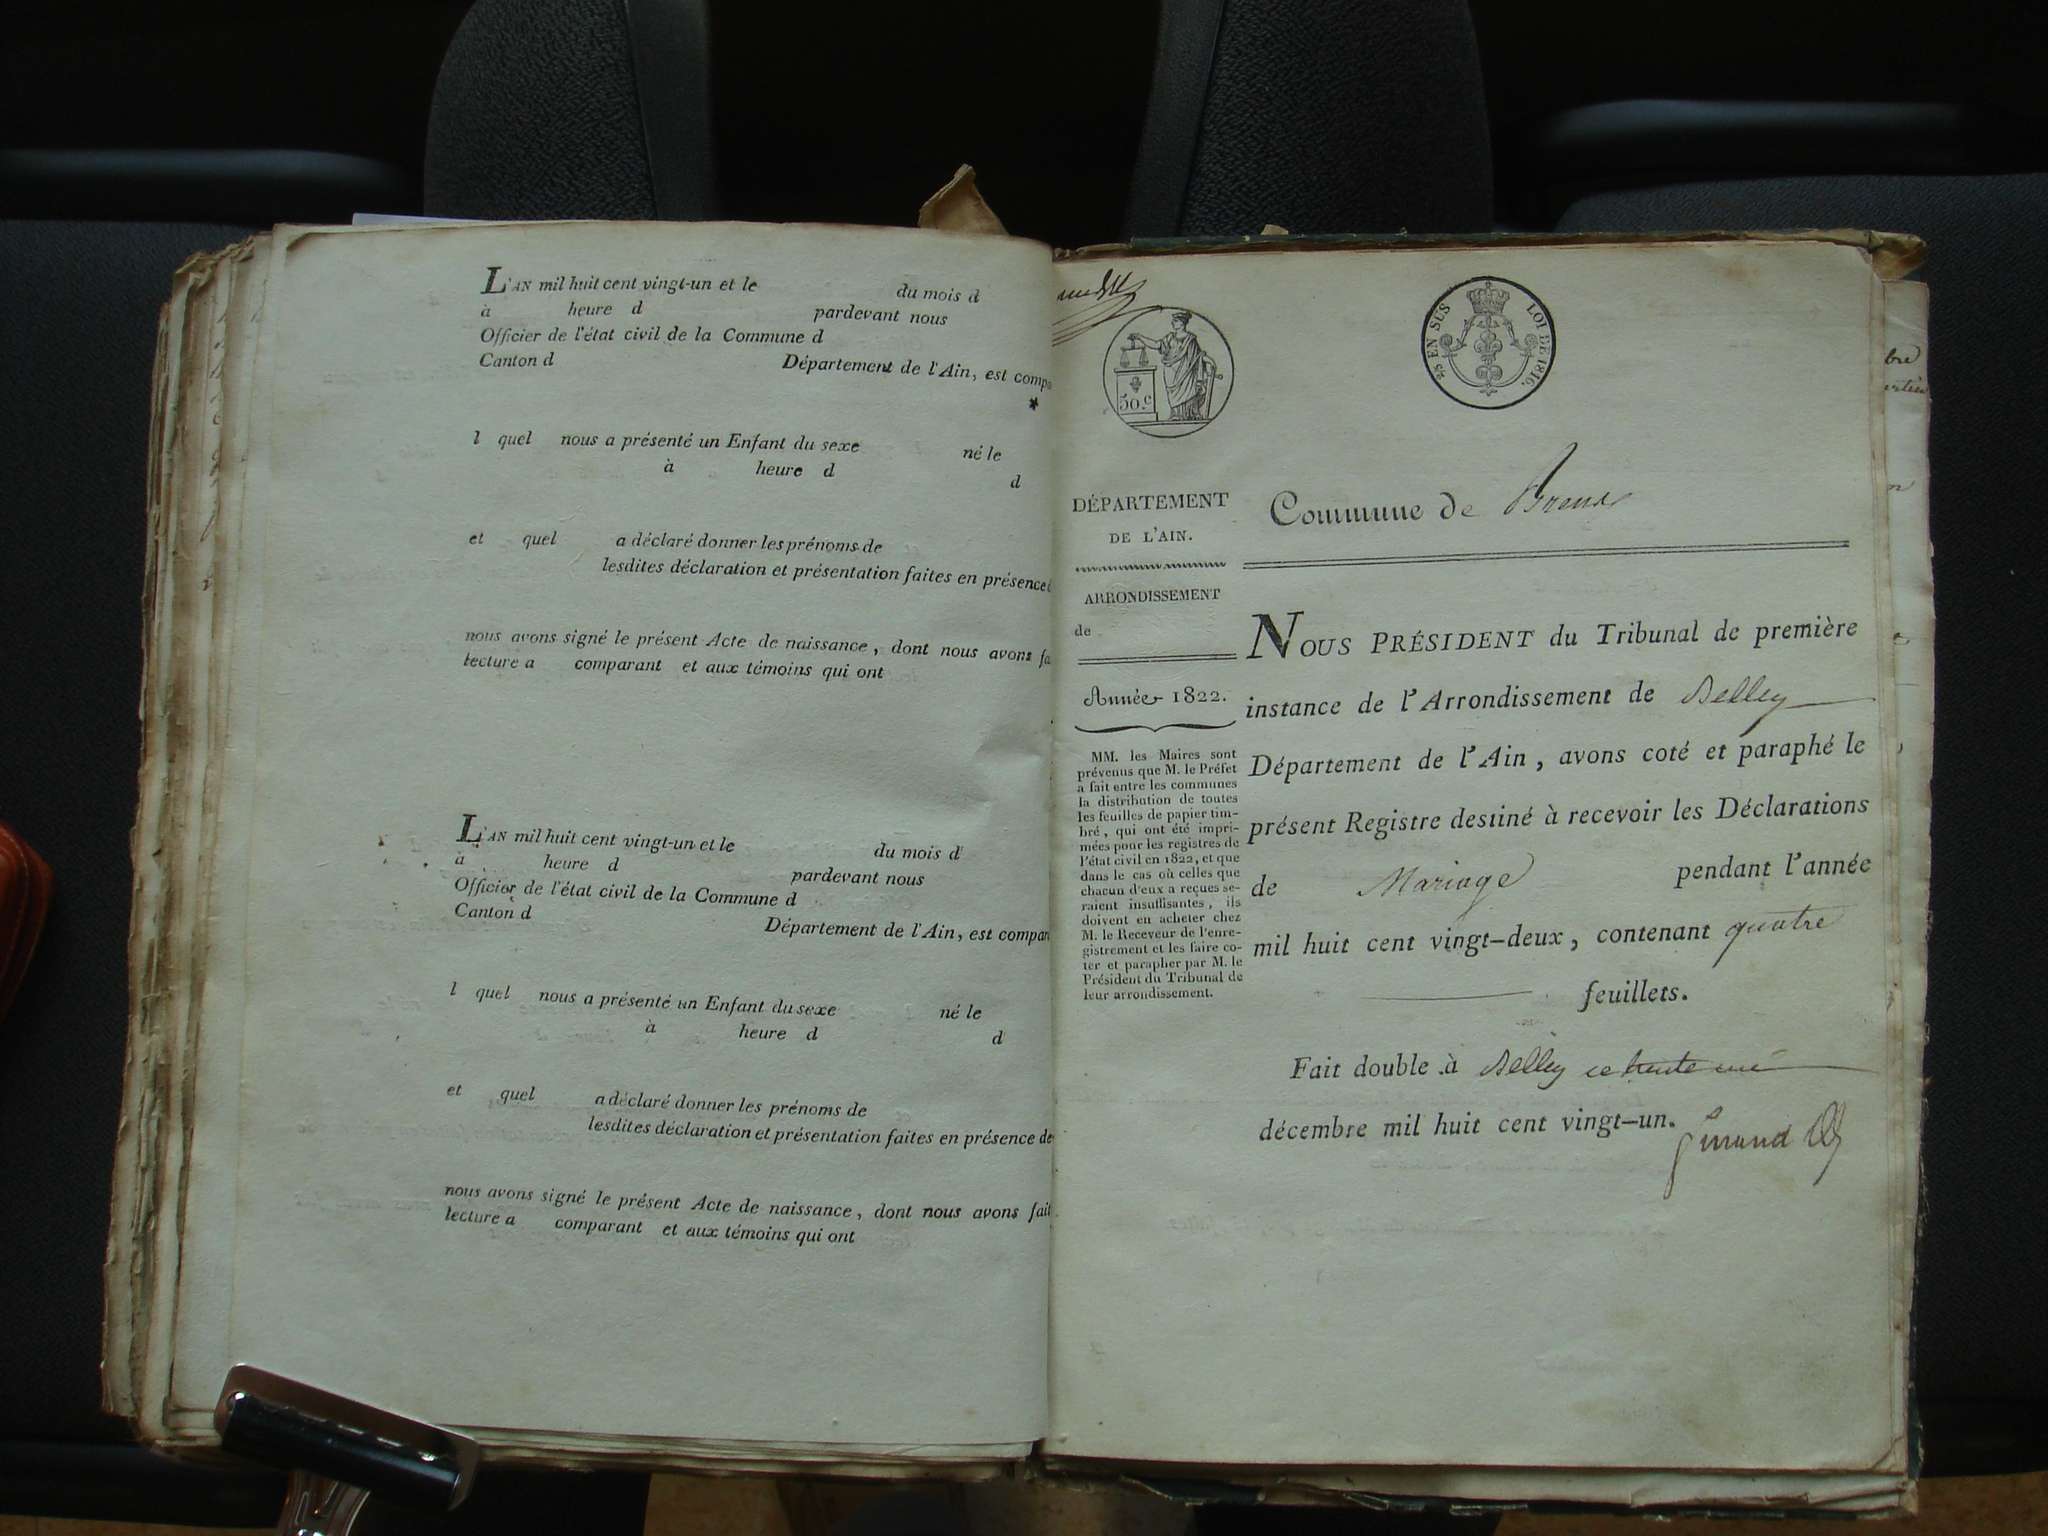 L'AN mil huit cent vingt-un et le du mois d
à heure d pardevant nous
Officier de l'état civil de la Commune d
Canton d Département de l'Ain, est compa
l quel nous a présenté un Enfant du sexe né le
à heure d d
et quel a déclaré donner les prénoms de
lesdites déclaration et présentation faites en présence
nous avons signé le présent Acte de naissance, dont nous avons fa
lecture a comparant et aux témoins qui ont
L'AN mil huit cent vingt-un et le du mois d
à heure d pardevant nous
Officier de l'état civil de la Commune d
Canton d Département de l'Ain, est compar
l quel nous a présenté un Enfant du sexe né le
à heure d d
et quel a déclaré donner les prénoms de
lesdites déclaration et présentation faites en présence de
nous avons signé le présent Acte de naissance, dont nous avons fait
lecture a comparant et aux témoins qui ont
50.c
EN SUS LOI DE 1816.
DÉPARTEMENT
DE L'AIN.
ARRONDISSEMENT
de
Année 1822.
MM. les Maires sont
prévenus que M. le Préfet
a fait entre les communes
la distribution de toutes
les feuilles de papier tim-
bré, qui ont été impri-
mées pour les registres de
l'état civil en 1822, et que
dans le cas où celles que
chacun d'eux a reçues se-
raient insuffisantes, ils
doivent en acheter chez
M. le Receveur de l'enre-
gistrement et les faire co-
ter et parapher par M. le
Président du Tribunal de
leur arrondissement.
Commune de
NOUS PRÉSIDENT du Tribunal de première
instance de l'Arrondissement de Belley
Département de l'Ain, avons coté et paraphé le
présent Registre destiné à recevoir les Déclarations
de Mariage pendant l'année
mil huit cent vingt-deux, contenant quatre
feuillets.
Fait double à Belley ce trente un
décembre mil huit cent vingt-un.